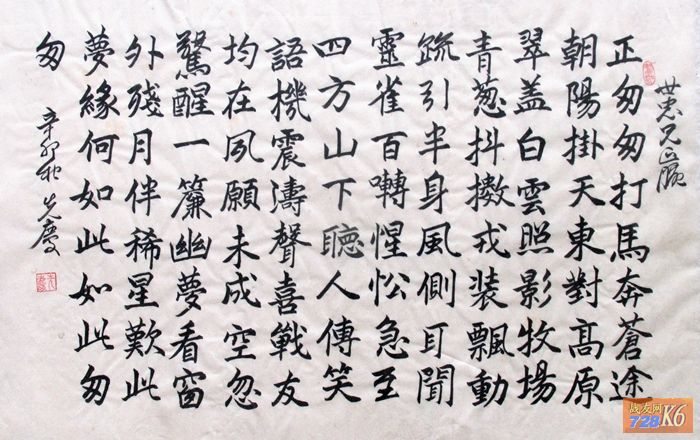 世忠兄正腕
正匆匆打馬奔蒼途
朝陽掛天東對高原
翠盖白雲照影牧場
青葱抖擻戎装飄動
疏引半身風側耳聞
靈雀百囀惺忪急至
四方山下聽人傳笑
語機震濤聲喜戰友
均在夙願未成空忽
驚醒一簾幽夢看窗
外殘月伴稀星歎此
夢緣何如此如此匆
匆
辛卯秋 先慶
战友网
728K6